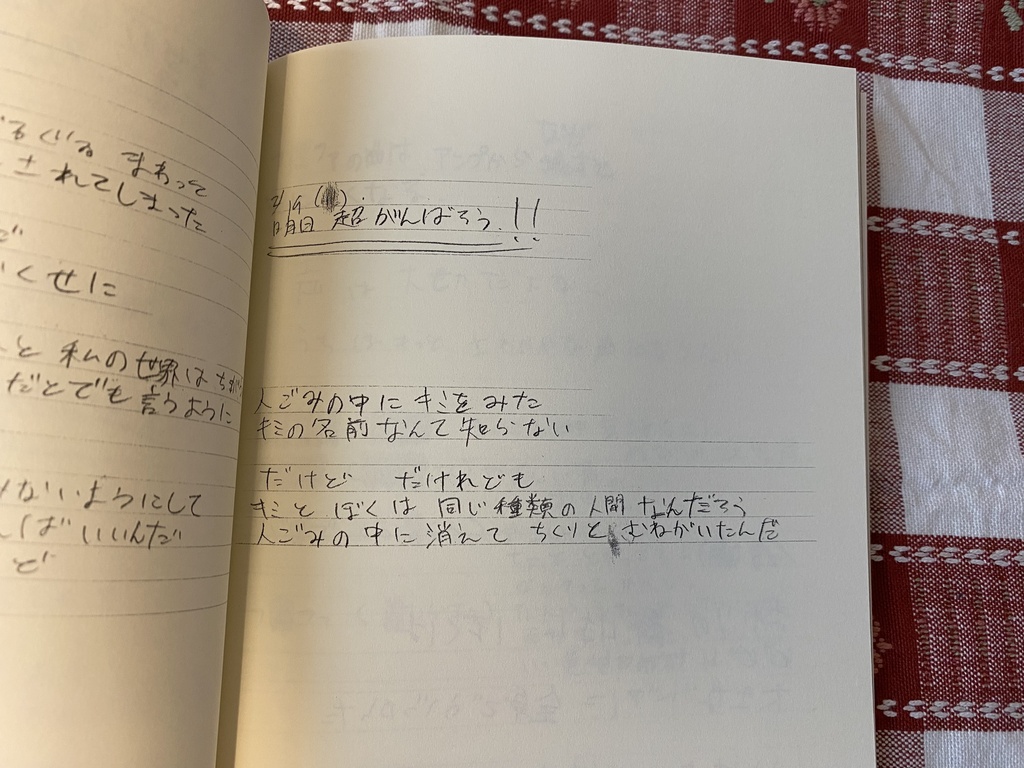 ぐるぐる まわって
されてしまった
くせに
と 私の世界は ちが
だとでも言うように
ないようにして
ばいいんだ
ど
2/19
明日 超がんばろう!!
人ごみの中に キミをみた
キミの名前なんて知らない
だけど だけれども
キミと ぼくは 同じ種類の人間なんだろう
人ごみの中に消えて ちくりと むねがいたんだ